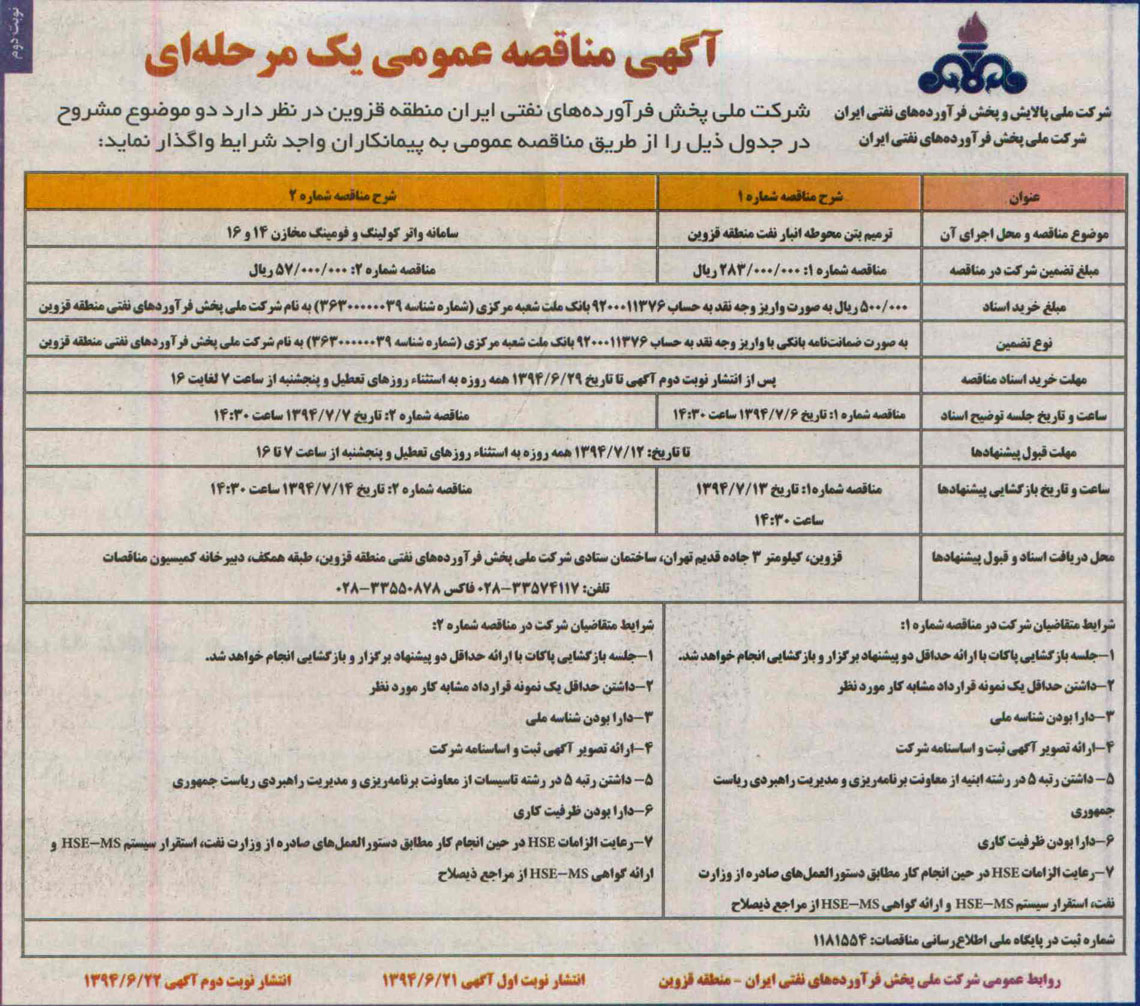 نوبت دوم
آگهی مناقصه عمومی یک مرحله‌ای
شرکت ملی پالایش و پخش فرآورده‌های نفتی ایران
شرکت ملی پخش فرآورده‌های نفتی ایران
شرکت ملی پخش فرآورده‌های نفتی ایران منطقه قزوین در نظر دارد دو موضوع مشروح
در جدول ذیل را از طریق مناقصه عمومی به پیمانکاران واجد شرایط واگذار نماید:
عنوان شرح مناقصه شماره ۱ شرح مناقصه شماره ۲
موضوع مناقصه و محل اجرای آن ترمیم بتن محوطه انبار نفت منطقه قزوین سامانه واتر کولینگ و فومینگ مخازن ۱۴ و ۱۶
مبلغ تضمین شرکت در مناقصه مناقصه شماره ۱: ۲۸۳/۰۰۰/۰۰۰ ریال مناقصه شماره ۲: ۵۷/۰۰۰/۰۰۰ ریال
مبلغ خرید اسناد ۵۰۰/۰۰۰ ریال به صورت واریز وجه نقد به حساب ۹۲۰۰۰۱۱۳۷۶ بانک ملت شعبه مرکزی (شماره شناسه ۳۶۳۰۰۰۰۰۰۳۹) به نام شرکت ملی پخش فرآورده‌های نفتی منطقه قزوین
نوع تضمین به صورت ضمانت‌نامه بانکی یا واریز وجه نقد به حساب ۹۲۰۰۰۱۱۳۷۶ بانک ملت شعبه مرکزی (شماره شناسه ۳۶۳۰۰۰۰۰۰۳۹) به نام شرکت ملی پخش فرآورده‌های نفتی منطقه قزوین
مهلت خرید اسناد مناقصه پس از انتشار نوبت دوم آگهی تا تاریخ ۱۳۹۴/۶/۲۹ همه روزه به استثناء روزهای تعطیل و پنجشنبه از ساعت ۷ لغایت ۱۶
ساعت و تاریخ جلسه توضیح اسناد مناقصه شماره ۱: تاریخ ۱۳۹۴/۷/۶ ساعت ۱۴:۳۰ مناقصه شماره ۲: تاریخ ۱۳۹۴/۷/۷ ساعت ۱۴:۳۰
مهلت قبول پیشنهادها تا تاریخ: ۱۳۹۴/۷/۱۲ همه روزه به استثناء روزهای تعطیل و پنجشنبه از ساعت ۷ تا ۱۶
ساعت و تاریخ بازگشایی پیشنهادها مناقصه شماره۱: تاریخ ۱۳۹۴/۷/۱۳ مناقصه شماره ۲: تاریخ ۱۳۹۴/۷/۱۴ ساعت ۱۴:۳۰
ساعت ۱۴:۳۰
محل دریافت اسناد و قبول پیشنهادها قزوین، کیلومتر ۳ جاده قدیم تهران، ساختمان ستادی شرکت ملی پخش فرآورده‌های نفتی منطقه قزوین، طبقه همکف، دبیرخانه کمیسیون مناقصات
تلفن: ۳۳۵۷۴۱۱۷-۰۲۸ فاکس ۳۳۵۵۰۸۷۸-۰۲۸
شرایط متقاضیان شرکت در مناقصه شماره ۱:
۱-جلسه بازگشایی پاکات با ارائه حداقل دو پیشنهاد برگزار و بازگشایی انجام خواهد شد.
۲-داشتن حداقل یک نمونه قرارداد مشابه کار مورد نظر
۳-دارا بودن شناسه ملی
۴-ارائه تصویر آگهی ثبت و اساسنامه شرکت
۵- داشتن رتبه ۵ در رشته ابنیه از معاونت برنامه‌ریزی و مدیریت راهبردی ریاست
جمهوری
۶-دارا بودن ظرفیت کاری
۷-رعایت الزامات HSE در حین انجام کار مطابق دستورالعمل‌های صادره از وزارت
نفت، استقرار سیستم HSE-MS و ارائه گواهی HSE-MS از مراجع ذیصلاح
شرایط متقاضیان شرکت در مناقصه شماره ۲:
۱-جلسه بازگشایی پاکات با ارائه حداقل دو پیشنهاد برگزار و بازگشایی انجام خواهد شد.
۲-داشتن حداقل یک نمونه قرارداد مشابه کار مورد نظر
۳-دارا بودن شناسه ملی
۴-ارائه تصویر آگهی ثبت و اساسنامه شرکت
۵- داشتن رتبه ۵ در رشته تاسیسات از معاونت برنامه‌ریزی و مدیریت راهبردی ریاست جمهوری
۶-دارا بودن ظرفیت کاری
۷-رعایت الزامات HSE در حین انجام کار مطابق دستورالعمل‌های صادره از وزارت نفت، استقرار سیستم HSE-MS و
ارائه گواهی HSE-MS از مراجع ذیصلاح
شماره ثبت در پایگاه ملی اطلاع‌رسانی مناقصات: ۱۱۸۱۵۵۴
روابط عمومی شرکت ملی پخش فرآورده‌های نفتی ایران - منطقه قزوین انتشار نوبت اول آگهی ۱۳۹۴/۶/۲۱ انتشار نوبت دوم آگهی ۱۳۹۴/۶/۲۲